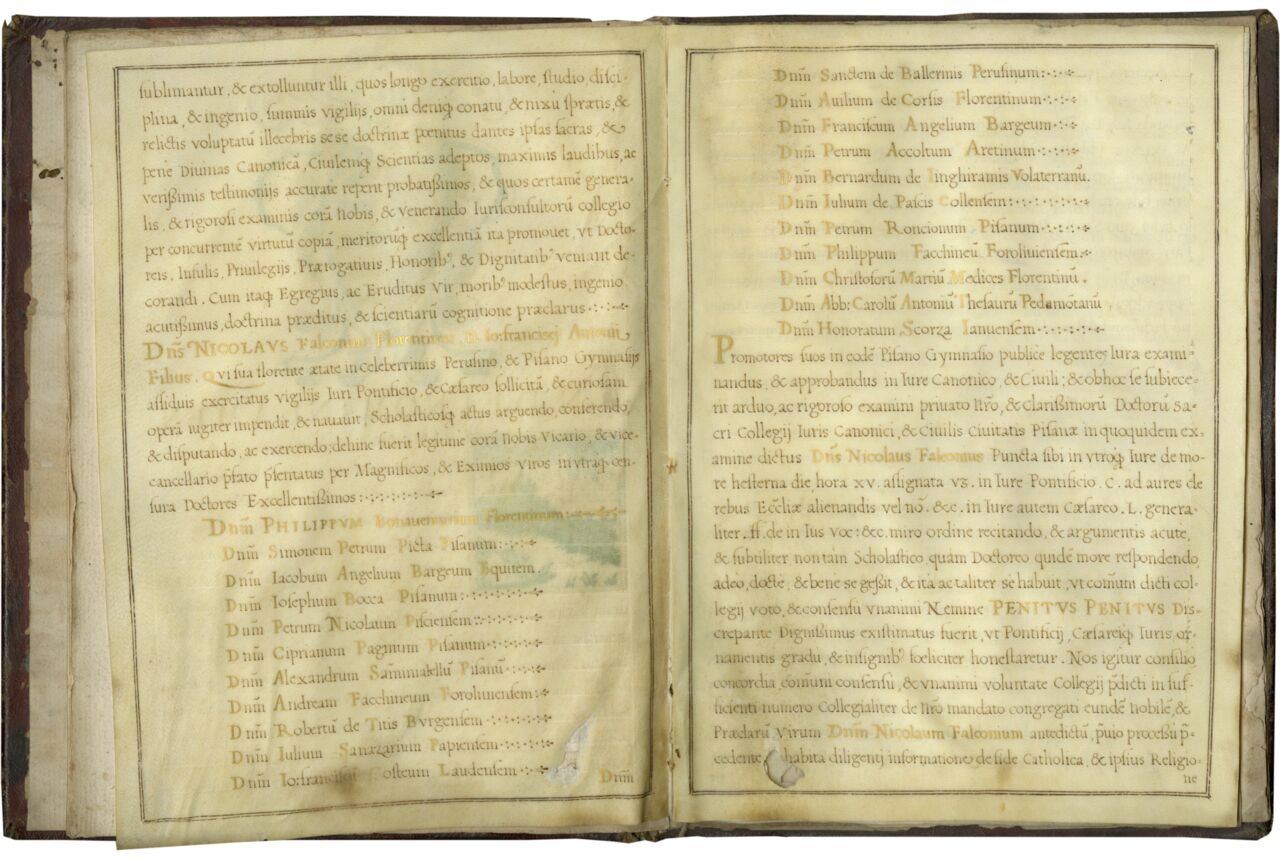 sublimantur, & extolluntur illi, quos longo exercitio, labore, studio disci-
plina, & ingenio, summis vigilijs, omni deniq̃ conatu, & nixu sprætis, &
relictis voluptatũ illecebris se se doctrinæ pœnitus dantes ipsas sacras, &
pene Diuinas Canonicã, Ciuilemq̃ Scientias adeptos, maximis laudibus, ac
verißimis testimonijs accurate reperit probatißimos, & quos certamẽ genera-
lis, & rigorosi examinis corã Nobis, & venerando Iurisconsultorũ collegio
per concurrentẽ virtutũ copiã, meritorũq̃ excellentiã ita promouet, vt Docto-
reis, Insulis, Priuilegijs, Prærogatiuis, Honorib᾿, & Dignitatib᾿ veniant de-
corandi. Cum itaq̃ Egregius, ac Eruditus Vir, morib᾿ modestus, ingenio
acutißimus, doctrina præditus, & scientiarũ cognitione præclarus
Dñs NICOLAVS Falconius Florentinus D. Io: francisci Antonij
Filius. Qui sua florente ætate in celeberrimis Perusino, & Pisano Gymnasijs
assiduis exercitatus vigilijs Iuri Pontificio, & Cæsareo sollicitã, & curiosam
operã iugiter impendit, & nauauit, Scholasticosq̃ actus arguendo, conferendo,
& disputando, ac exercendo; dehinc fuerit legitime corã Nobis Vicario, & vice-
cancellario p̃fato p̃sentatus per Magnificos, & Eximios Viros in vtraq̃ cen-
sura Doctores Excellentißimos
Dnm̃ PHILIPPVM Bonauenturium Florentinum
Dnm̃ Simonem Petrum Picta Pisanum
Dnm̃ Iacobum Angelium Bargeum Equitem.
Dnm̃ Iosephum Bocca Pisanum
Dnm̃ Petrum Nicolaum Pisciensem
Dnm̃ Ciprianum Pagnium Pisanum
Dnm̃ Alexandrum Samminiatellũ Pisanũ
Dnm̃ Andream Facchineum Foroliuiensem
Dnm̃ Robertũ de Titis Burgensem
Dnm̃ Iulium Sanazarium Papiensem
Dnm̃ Io: franciscũ Costeum Laudensem
Dnm̃
Dnm̃ Sanctem de Ballerinis Perusinum
Dnm̃ Auilium de Corsis Florentinum
Dnm̃ Franciscum Angelium Bargeum
Dnm̃ Petrum Accoltum Aretinum
Dnm̃ Bernardum de Iinghiramis Volaterranũ.
Dnm̃ Iulium de Pascis Collensem
Dnm̃ Petrum Roncionum Pisanum
Dnm̃ Philippum Facchineũ Foroliuiensem
Dnm̃ Christoforũ Martiũ Medices Florentinũ.
Dnm̃ Abb: Carolũ Antoniũ Thesaurũ Pedemõtanũ
Dnm̃ Honoratum Scorza Ianuensem
Promotores suos in eodẽ Pisano Gymnasio publice legentes Iura exami-
nandus, & approbandus in Iure Canonico, & Ciuili; & ob hoc se subiece-
rit arduo, ac rigoroso examini priuato Nr̃o, & Clarißimorũ Doctorũ Sa-
cri Collegij Iuris Canonici, & Ciuilis Ciuitatis Pisanæ in quoquidem ex-
amine dictus Dñs Nicolaus Falconius Puncta sibi in vtroq̃ Iure de mo-
re hesterna die hora xv. assignata vz. in Iure Pontificio. C. ad aures de
rebus Eccl̃iæ alienandis vel nõ. &c. in Iure autem Cæsareo. L. genera-
liter. ff. de in Ius voc: &c. miro ordine recitando, & argumentis acute,
& subtiliter non tam Scholastico, quàm Doctoreo quidẽ more respondendo,
adeo, docte, & bene se geßit, & ita ac taliter se habuit, vt com̃uni dicti col-
legij voto, & consensu vnanimi Nemine PENITVS PENITVS Dis-
crepante Dignißimus existimatus fuerit, vt Pontificij, Cæsareiq̃ Iuris, or-
namentis gradu, & insignib᾿ fœliciter honestaretur. Nos igitur consilio
concordia, com̃uni consensu, & vnanimi voluntate Collegij p̃dicti in suf-
ficienti numero Collegialiter de Nr̃o mandato congregati eundẽ nobilẽ, &
Præclarũ Virum Dnm̃ Nicolaum Falconium antedictũ, p̃uio proceßu p̃-
cedente habita diligenti informatione de fide Catholica, & ipsius Religio-
ne